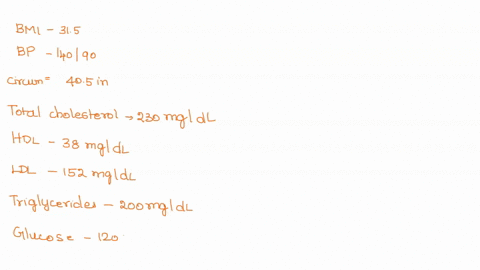 BMI - 31.5
BP - 140/90
circum= 40.5 in
Total cholesterol → 230 mg/dL
HDL - 38 mg/dL
LDL - 152 mg/dL
Triglycerides - 200 mg/dL
Glucose - 120